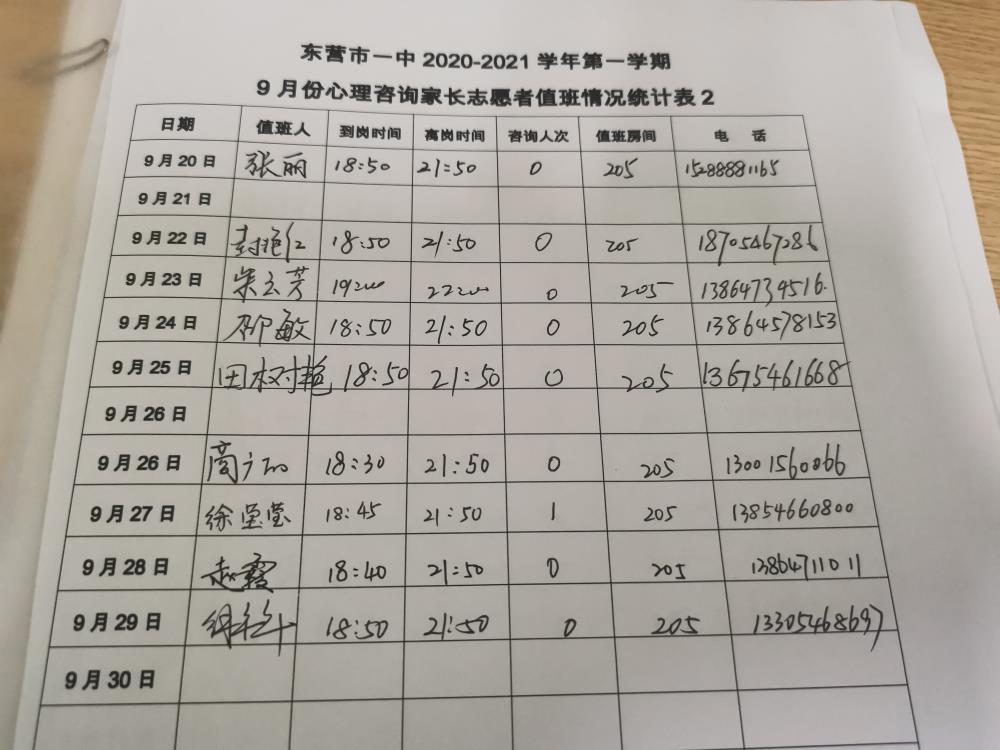 东营市一中 2020-2021 学年第一学期
9 月份心理咨询家长志愿者值班情况统计表 2
日期 值班人 到岗时间 离岗时间 咨询人次 值班房间 电 话
9 月 20 日 张丽 18:50 21:50 0 205 15288881165
9 月 21 日
9 月 22 日 18:50 21:50 0 205 18705467286
9 月 23 日 0 205 13864734516
9 月 24 日 敏 18:50 21:50 0 205 13864578153
9 月 25 日 田树艳 18:50 21:50 0 205 13675461668
9 月 26 日
9 月 26 日 18:30 21:50 0 205 13001560066
9 月 27 日 徐莹莹 18:45 21:50 1 205 13854660800
9 月 28 日 赵霞 18:40 21:50 0 205 13864711011
9 月 29 日 18:50 21:50 0 205 13305468697
9 月 30 日